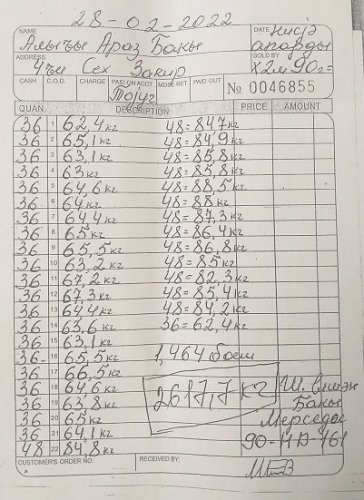 28-02-2022
NAME
Алыъы Араз Бакы
DATE
ADDRESS
4ъы Сех Закир
SOLD BY
апарды
х2м.90г=
CASH C.O.D. CHARGE PAID ON ACCT. MDSE. RET. PAID OUT
Тојуг
№ 0046855
QUAN. DESCRIPTION PRICE AMOUNT
36 1 62,4кг 48=84,7кг
36 2 65,1кг 48=84,9кг
36 3 63,1кг 48=85,8кг
36 4 63кг 48=85,8кг
36 5 64,6кг 48=88,5кг
36 6 64кг 48=88кг
36 7 64,4кг 48=87,3кг
36 8 65кг 48=86,4кг
36 9 65,5кг 48=86,8кг
36 10 63,2кг 48=85кг
36 11 67,2кг 48=82,3кг
36 12 67,3кг 48=85,4кг
36 13 64,4кг 48=84,2кг
36 14 63,6кг 36=62,4кг
36 15 63,1кг
36 16 65,5кг 1,464 баш
36 17 66,5кг
36 18 64,6кг 2617,7кг
36 19 63,8кг
36 20 65кг
36 21 64,1кг
48 22 84,8кг
Бакы
Мерседес
90-НД-761
CUSTOMER'S ORDER NO. RECEIVED BY: